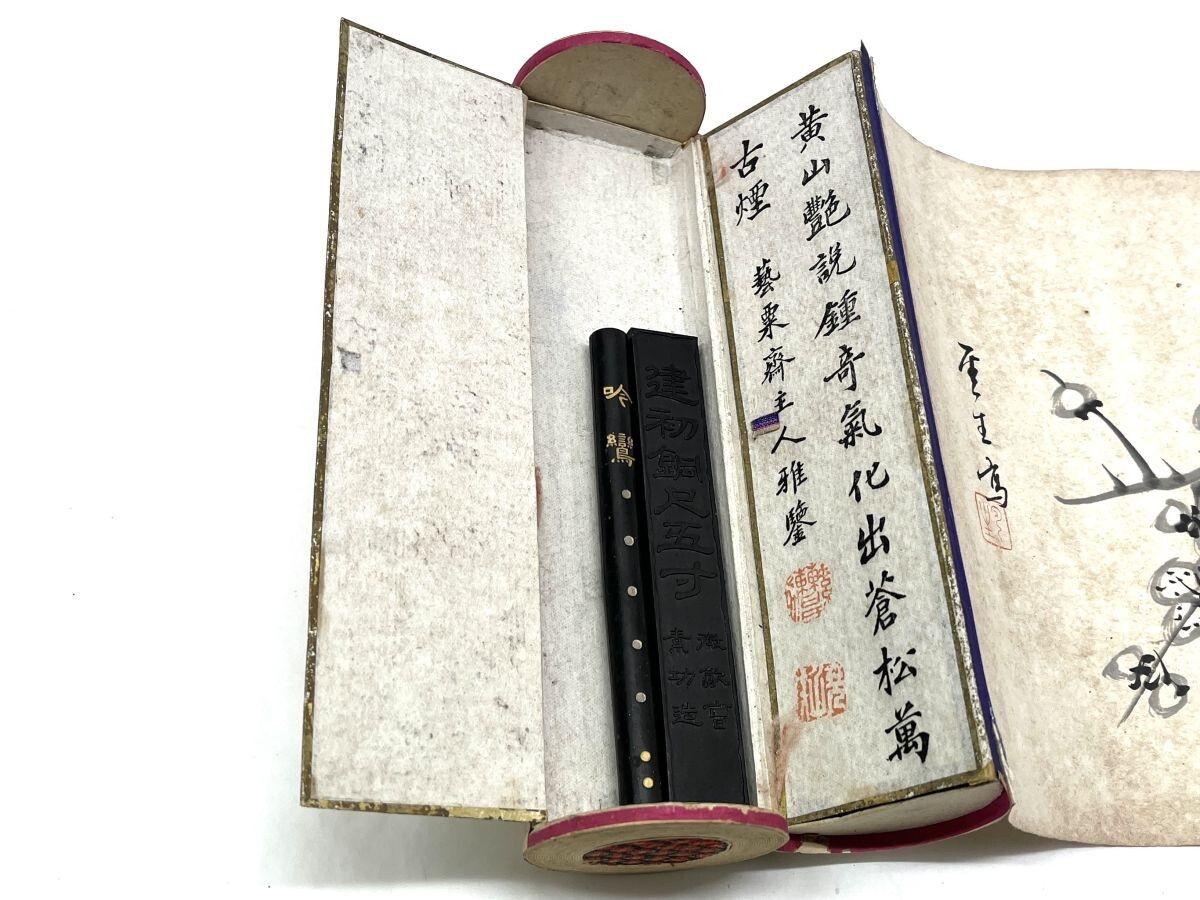 黄山艷說鍾奇氣化出蒼松萬
古煙
藝粟齋主人雅鑒
吟鸞
建初銅尺五寸
徽歙曹
素功造